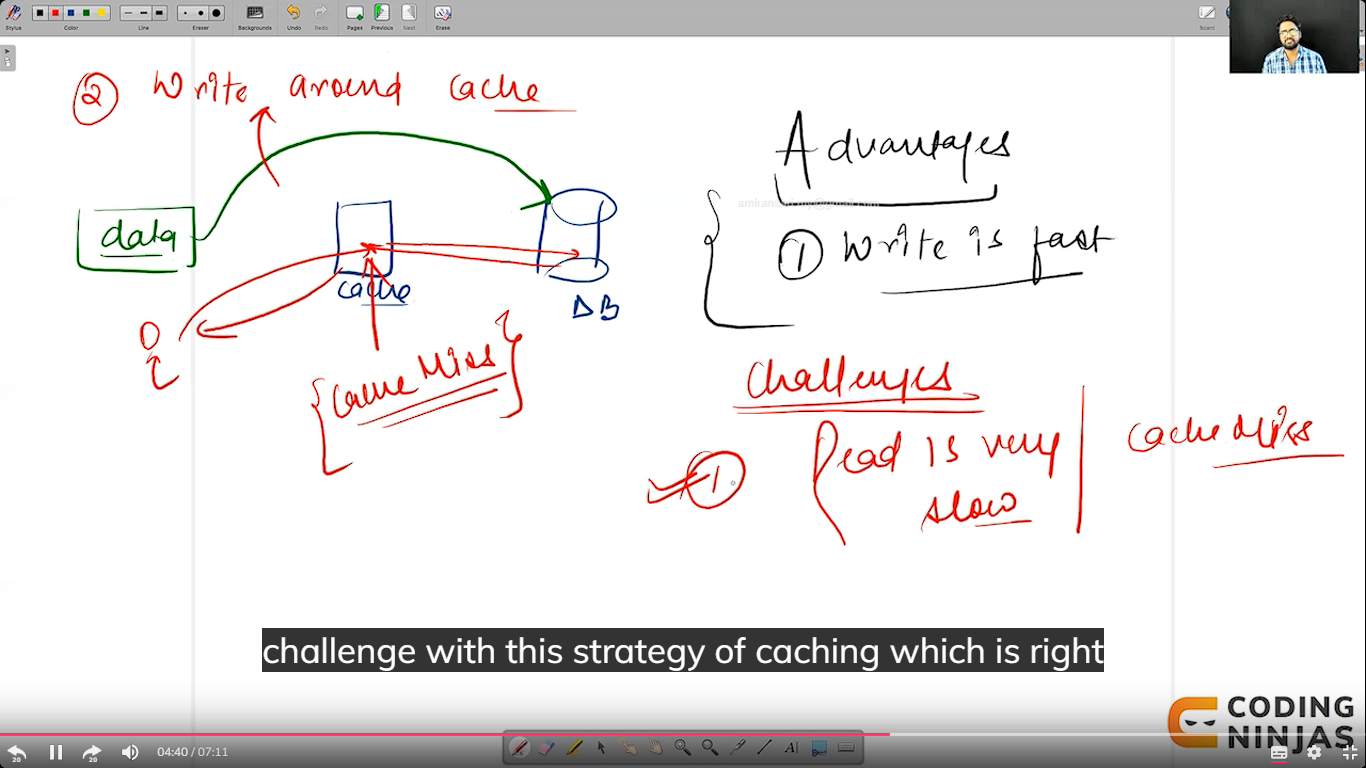 Stylus
Color
Line
Eraser
Backgrounds
Undo
Redo
Pages
Previous
Next
Erase
② Write around cache
data
cache
DB
{Cache Miss}
Advantages
① Write is fast
Challenges
① Read is very slow
Cache Miss
challenge with this strategy of caching which is right
CODING NINJAS
20
20
04:40 / 07:11